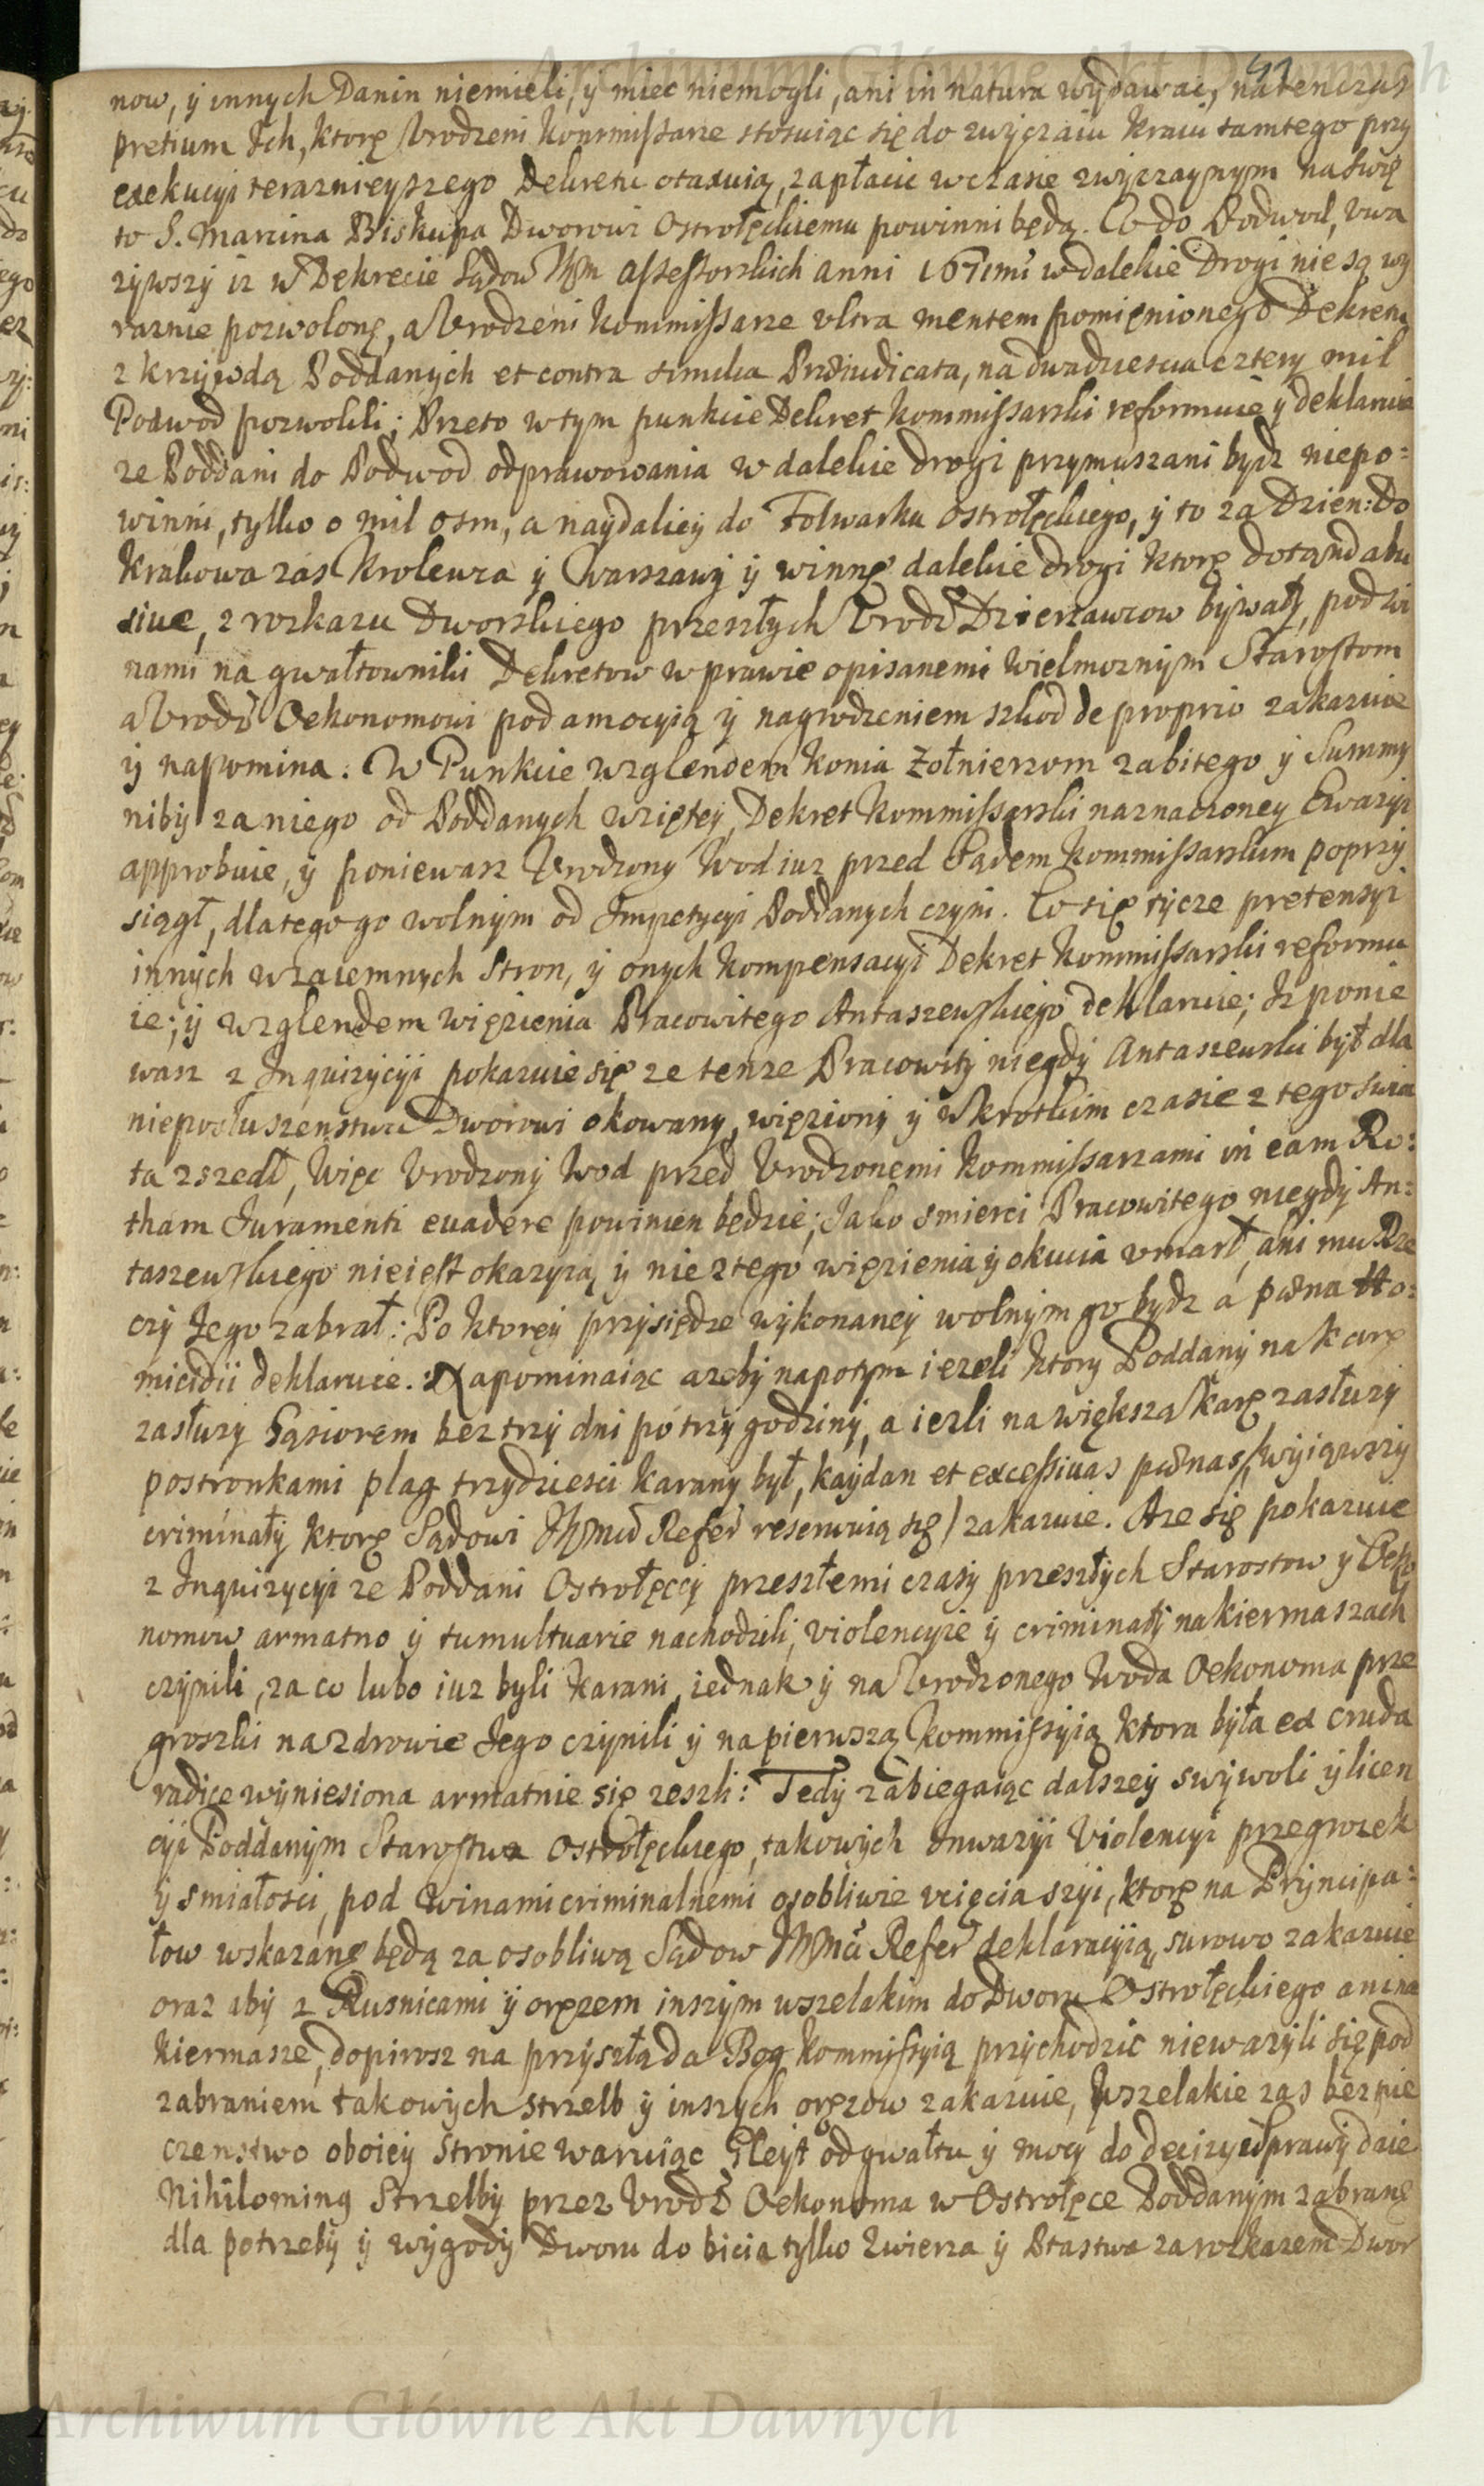 41
now, ÿ innych Danin niemieli, ÿ miec niemogli, ani in natura wydawac, natenczas
pretium Jch, ktorę Vrodzeni Kommissarze stosuiąc się do zwyczaiu kraiu tamtego przy
exekucyi teraznieyszego Dekretu otaxuią, zapłacic w czasie zwyczaynym na Swię
to S. Marcina Biskupa Dworowi Ostrołęckiemu powinni będą. Co do Podwod, vwa
zywszy iz w Dekrecie Sądow Assessorskich anni 1671mi w dalekie Drogi nie są wy
raznie pozwolonę, a Vrodzeni Kommissarze vltra mentem pomięnionego Dekretu
z krzywdą Poddanych et contra similia Præiudicata, na dwadziescia cztery mil
Podwod pozwolili; Przeto w tym punkcie Dekret Kommissarski reformuie ÿ deklaruie
ze Poddani do Podwod odprawowania w dalekie drogi przymuszani bydz niepo:
winni, tylko o mil osm, a naydaliey do Folwarku Ostrołęckiego, ÿ to za Dzien: Do
Krakowa zas Krolewca ÿ Warszawy ÿ w innę dalekie drogi ktorę dotąnd abu
sive, z rozkazu Dworskiego przeszłych Vrodź Dzierzawcow bywały, pod wi
nami na gwałtowniki Dekretow w prawie opisanemi Wielmoznym Starostom
a Vrodź Oekonomowi pod amocyią ÿ nagrodzeniem szkod de proprio zakazuie
ÿ napomina. W Punkcie wzglendem konia Zołnierzom zabitego ÿ Summy
niby za niego od Poddanych wziętey, Dekret Kommissarski naznaczoney Ewazyi
approbuie, ÿ poniewasz Vrodzony Wod iuz przed Sądem Kommissarskim poprzy
siągł, dlatego go wolnym od Jmpetycyi Poddanych czyni. Co się tycze pretensyi
innych wzaiemnych Stron, ÿ onych kompensacyi Dekret Kommissarski reformu
ie; ÿ wzglendem więzienia Pracowitego Antaszewskiego deklaruie; Jz ponie
wasz z Jnquizycyi pokazuie się ze tenze Pracowity niegdy Antaszewski był dla
nieposłuszenstwa Dworowi okowany, więziony ÿ w krotkim czasie z tego swia
ta zszedł, Więc Vrodzony Wod przed Vrodzonemi Kommissarzami in eam Ro:
tham Juramenti euadere powinien będzie; Jako smierci Pracowitego niegdy An:
taszewskiego nieiest okazyią ÿ nie z tego więzienia ÿ okucia vmarł, ani mu Rze
czy Jego zabrał: Po ktorey przysiędze wykonaney wolnym go bydz a pæna Ho:
micidii deklaruie. Napominaiąc azeby napotym iezeli ktory Poddany na karę
zasłuzy Gąsiorem bez trzy dni po trzy godziny, a iezli na większą karę zasłuzy
postronkami plag trzydziesci karany był, kaydan et excessiuas pænas /wyiąwszy
criminały ktorę Sądowi Refer reserwuią się/ zakazuie. A ze się pokazuie
z Jnquizycyi ze Poddani Ostrołęccy przeszłemi czasy przeszłych Starostow ÿ Oeko
nomow armatno ÿ tumultuarie nachodzili, violencyie ÿ criminały na kiermaszach
czynili, za co lubo iuz byli karani, iednak ÿ na Vrodzonego Woda Oekonoma prze
groszki na Zdrowie Jego czynili ÿ na pierwszą Kommissyią ktora była ex cruda
radice wyniesiona armatnie się zeszli: Tedy zabiegaiąc dalszey swywoli ÿ licen
cyi Poddanym Starostwa Ostrołęckiego, takowych Jnwazyi Violencyi przegrozek
ÿ smiałosci, pod winami criminalnemi osobliwie vcięcia szyi, ktorę na Pryncipa:
łow wskazanę będą za osobliwą Sądow Refer deklaracyią, surowo zakazuie
oraz aby z Rusnicami ÿ oręzem inszym wszelakim do Dworu Ostrołęckiego ani na
kiermasze, dopirosz na przyszłą da Bog Kommissyią przychodzic niewazyli się pod
zabraniem takowych strzelb ÿ inszych oręzow zakazuie, Wszelakie zas bezpie
czenstwo oboiey Stronie waruiąc Gleyt od gwałtu ÿ mocy do decizyi Sprawy daie
Nihilominq Strzelby przez Vrodź Oekonoma w Ostrołęce Poddanym zabranę
dla potrzeby ÿ wygody Dworu do bicia tylko Zwierza ÿ Ptastwa za rozkazem Dwor
Archiwum Główne Akt Dawnych